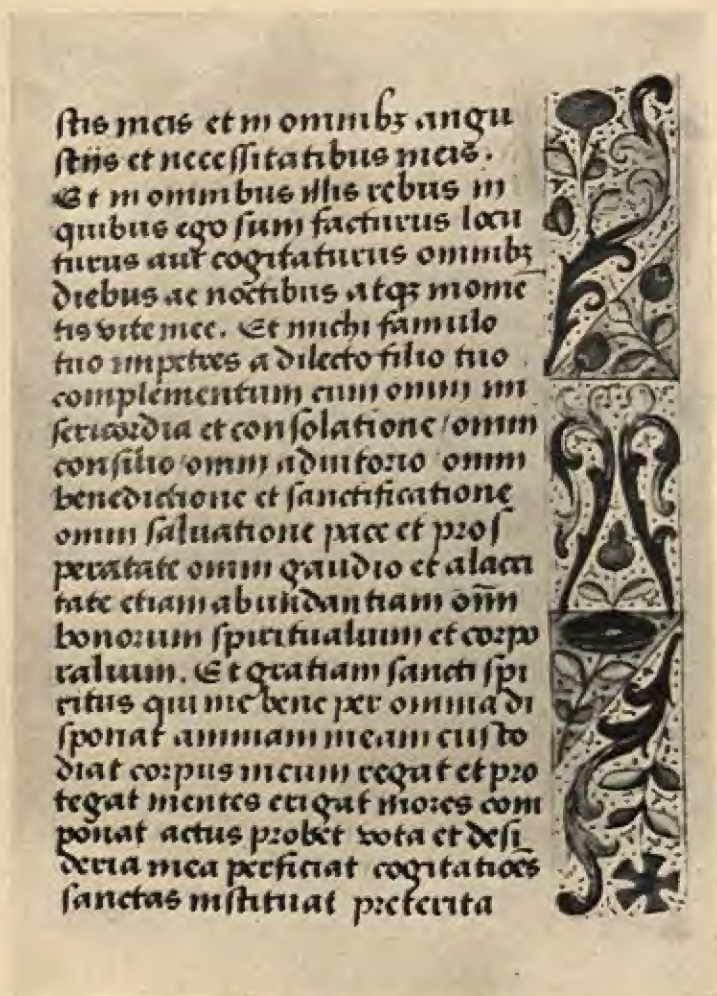 stis meis et in omnibꝫ angu
stiis et necessitatibus meis.
Et in omnibus illis rebus in
quibus ego sum facturus locu
turus aut cogitaturus omnibꝫ
diebus ac noctibus atqꝫ momē
tis vite mee. Et michi famulo
tuo impetres a dilecto filio tuo
complementum cum omni mi
sericordia et consolatione/omni
consilio/omni adiutorio omni
benedictione et sanctificatione
omni saluatione pace et pros
peratate omni gaudio et alacri
tate etiam abundantiam om̄
bonorum spiritualium et corpo
ralium. Et gratiam sancti spi
ritus qui me bene per omnia di
sponat animam meam custo
diat corpus meum regat et pro
tegat mentes erigat mores com
ponat actus probet vota et desi
deria mea perficiat cogitatiōēs
sanctas instituat preterita